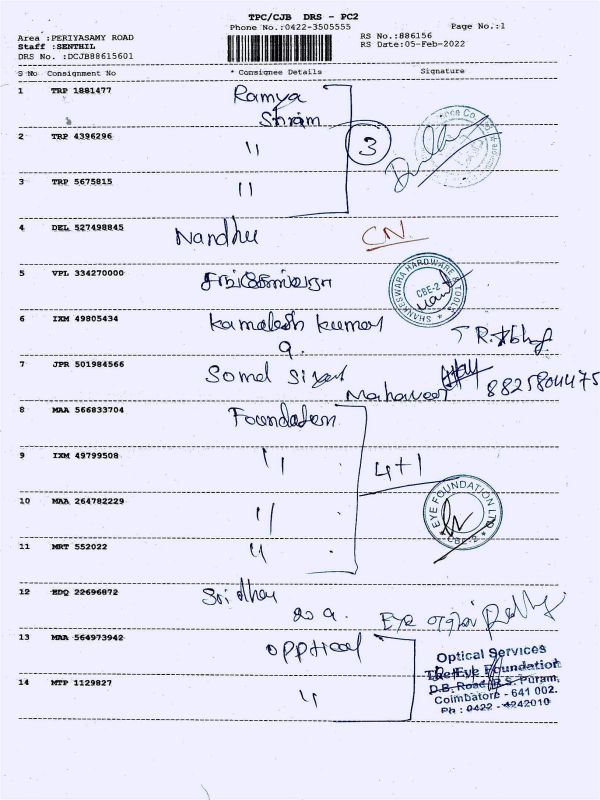 TPC/CJB DRS - PC2
Phone No.:0422-3505555
Page No.:1
Area :PERIYASAMY ROAD
Staff :SENTHIL
DRS No. :DCJB88615601
RS No.:886156
RS Date:05-Feb-2022
S No Consignment No * Consignee Details Signature
1 TRP 1881477 Ramya
Shram
2 TRP 4396296 "
3
3 TRP 5675815 "
4 DEL 527498845 Nandhu CN.
5 VPL 334270000
SHANKESWARA HARDWARE & TOOLS
CBE-2
6 IXM 49805434 Kamalesh Kumar
7 JPR 501984566 Somal
Mahaveer 8825804475
8 MAA 566833704 Foundation
9 IXM 49799508 " 4+1
10 MAA 264782229 "
EYE FOUNDATION LTD
CBE-2
11 MRT 552022 "
12 HDQ 22696872 Sridhar
Eye
13 MAA 564973942 opptical
Optical Services
The Eye Foundation
D.B. Road, R.S. Puram,
Coimbatore - 641 002.
Ph : 0422 - 4242010
14 MTP 1129827 "